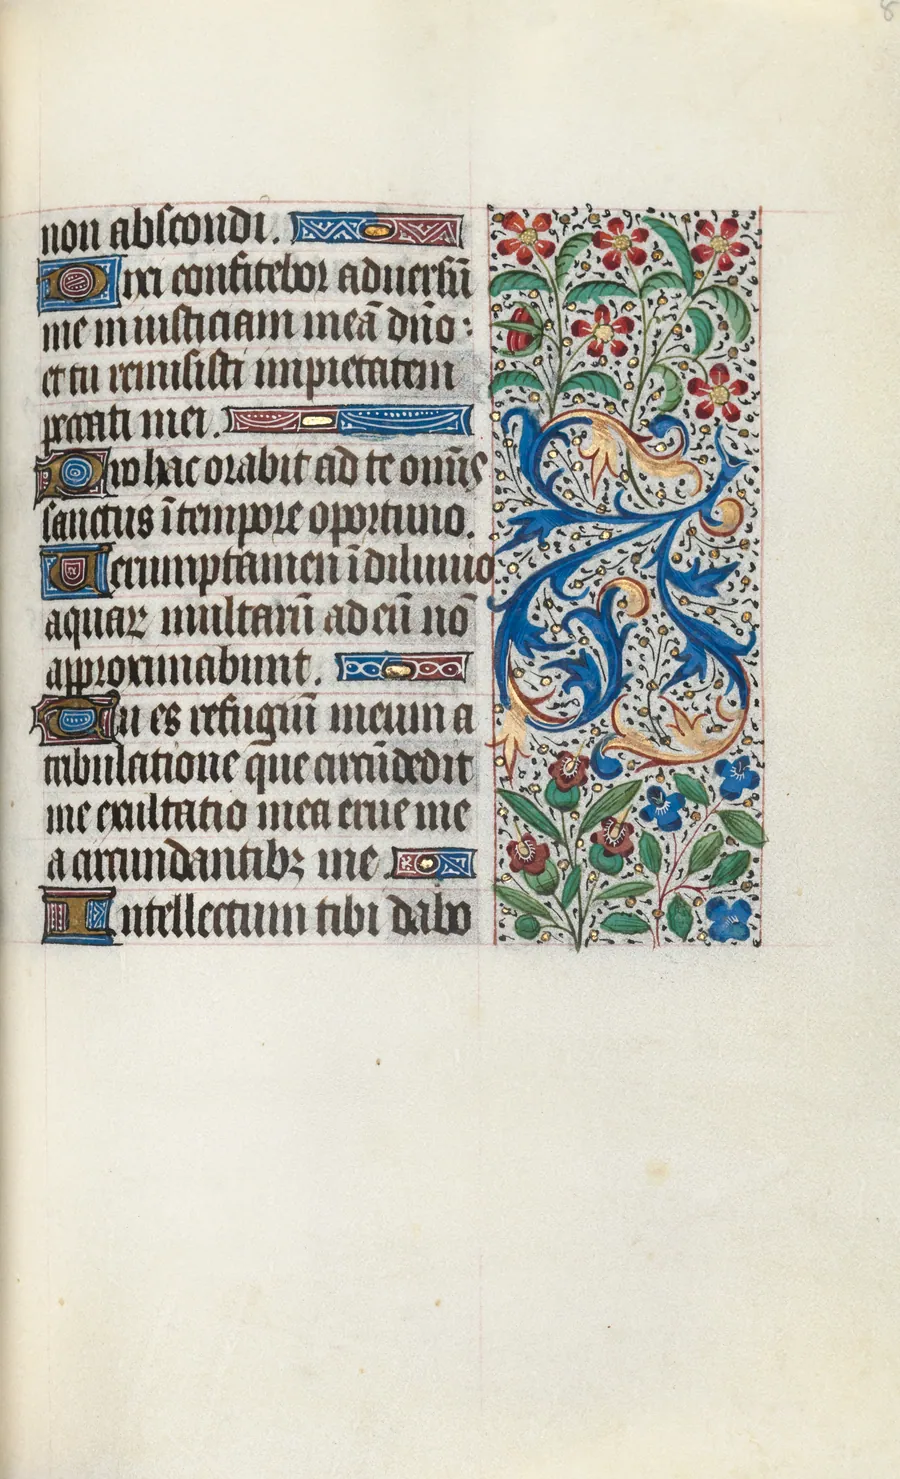 8
non abscondi.
Dixi confitebor aduersũ
me iniusticiam meã dñο:
et tu remisisti impietatem
peccati mei.
Pro hac orabit ad te om̃is
sanctus ĩ tempore oportuno.
Uerumptamen ĩ diluuio
aquaꝝ multarũ ad eũ nõ
approximabunt.
Tu es refugiũ meum a
tribulatione que circũdedit
me exultatio mea erue me
a circundantibꝫ me.
Intellectum tibi dabo